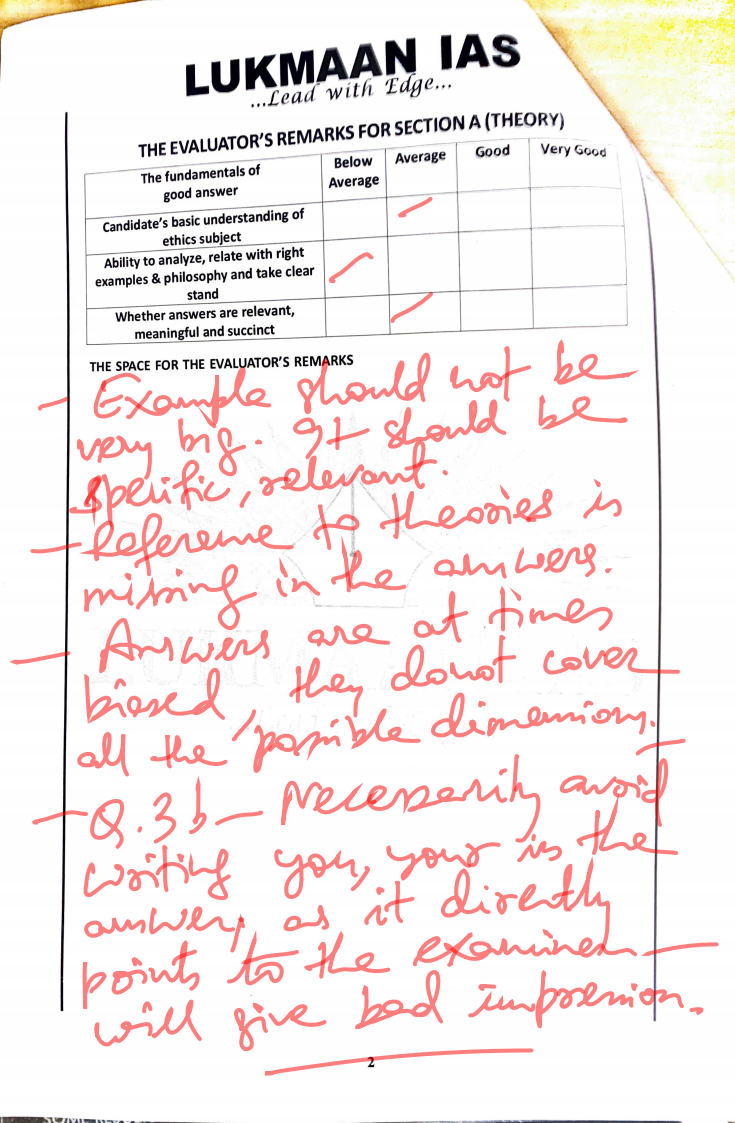 LUKMAAN IAS
...Lead with Edge...
THE EVALUATOR'S REMARKS FOR SECTION A (THEORY)
The fundamentals of good answer | Below Average | Average | Good | Very Good
Candidate's basic understanding of ethics subject
Ability to analyze, relate with right examples & philosophy and take clear stand
Whether answers are relevant, meaningful and succinct
THE SPACE FOR THE EVALUATOR'S REMARKS
- Example should not be
very big. It should be
specific, relevant.
- Reference to theories is
missing in the answers.
- Answers are at times
biased, they donot cover
all the possible dimensions.
- Q.3b - Necessarily avoid
writing you, your in the
answer, as it directly
points to the examiner -
will give bad impression.
2